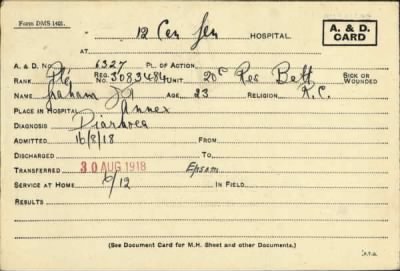 Form DMS 1401.
12 Can Gen HOSPITAL.
A. & D. CARD
AT
A. & D. No. 6327 PL. OF ACTION
RANK Pte REG. No. 3083484 UNIT 20c Res Batt SICK OR WOUNDED
NAME Graham J A AGE 23 RELIGION R.C.
PLACE IN HOSPITAL Annex
DIAGNOSIS Diarhoea
ADMITTED 16/8/18 FROM
DISCHARGED TO
TRANSFERRED 30 AUG 1918 Epsom
SERVICE AT HOME 6/12 IN FIELD
RESULTS
(See Document Card for M.H. Sheet and other Documents.)
P.T.O.